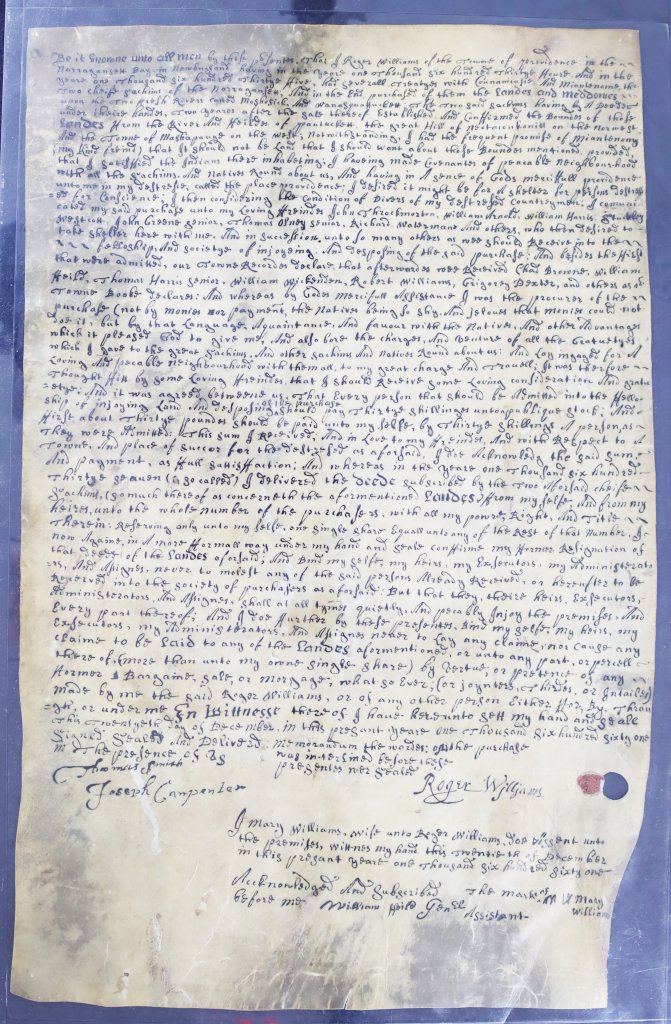 Be it knowne unto all men by these presents, That I Roger Williams of the Towne of providence in the
Narragansett Bay in New england having in the yeare one Thousand six hundred Thirtye ffoure, And in the
yeare one Thousand six hundred Thirtye ffive, had severall Treatyes with Counanicusse And Miantenome, the
Two cheife sachims of the Narragansett, And in the End purchased of them the Landes and Medowes
upon the Two ffresh Rivers called Moshosick And Wanasquatuckett. The Two said sachims having by A Deede
under theire handes Two yeares after the sale there of Established And Conffirmed the Boundes of those
Landes ffrom the River And ffeildes of Pautuckett the great Hill of Neotaconkonitt on the Norwest
And the Towne of Mashapauge on the west, Notwithstanding I had the ffrequent promise of Miantenomy
my kind ffreind, that it should not be Land that I should want about those Boundes mentioned, provided
that I sattisfied the Indians there inhabeting: I haveing made Covenantes of peacable Neighbourhood
with all the Sachims, And Natives Round about us; And having in A sence of Gods mercifull providence
unto me in my destresse, called the place providence; I desired it might be for A shelter for persons destressed
for Conscience; I then considering the condition of Divers of my destressed Countreymen, I comuni
cated my said purchase unto my Loving ffreindes John Throckmorton, William Arnold, William Harris,
Westcott, John Greene senior, Thomas Olney senior, Richard Waterman, And others, who then desired to
take shelter here with me, And in succession unto so many others as wee should Receive into the
ffellowship, And societye of injoyeing, And desposing of the said purchase: And besides the ffirst
that were admitted, our Towne Recordes declare, that afterwardes wee Received Chad Browne, William
ffeild, Thomas Harris senior, William Wickenden, Robert Williams, Grigorey Dexter, and others as our
Towne Booke declares: And whereas by Gods mercifull Assistance I was the procurer of the
purchase (not by monies nor payment, the Natives being so shy, And jelous that monies could not
doe it, but by that Language, Aquaintance, And favour with the Natives, And other Advantages
which it pleased God to give me, And also bore the charges, And Venture of all the Gratuetyes
which I gave to the great sachims, And other sachims And Natives Round about us: And Lay ingaged for A
Loving And pecable neighbourhood with them all, to my great charge And Travell; It was therefore
Thought ffitt by some Loving ffreindes, that I should Receive some Loving consideration And gratu
etye: And it was agreed betweene us; That Every person that should be Admitted into the ffellow
ship of injoying Land And desposing of the purchase should pay Thirtye shillinges unto a publique stock; And
ffirst about Thirtye poundes should be paid unto my selfe, by Thirtye shillinges A person, as
They were Admitted: This sum I Received, And in Love to my ffreindes, And with Respect to A
Towne, And place of succor for the destressed as aforsaid, I doe Acknowledg the said sum,
And payment, as ffull sattisffaction; And whereas in the yeare one Thousand six hundred
Thirtye seaven (so called) I delivered the deede subscribed by the Two Aforsaid cheife
Sachims, (so much thereof as concerneth the aforementioned Landes) ffrom my selfe, And from my
heires, unto the whole number of the purchasers, with all my power, Right, And Title
Therein: Reserving only unto my selfe, one single share Equall unto any of the Rest of that Number, I
now Againe, in A more fformall way under my hand and seale conffirme my fformer Resignation of
that deede of the Landes aforsaid; And Bind my selfe, my heirs, my Executors, my Administrato
rs, And Assignes, never to molest any of the said persons Already Received, or hereafter to be
Received into the society of purchasers as aforsaid: But that they, theire heirs, Executors,
Administerators, And Assignes, shall at all tymes quietly, And pecably Injoy the premises, And
Every part thereof; And I doe ffurther by these presentes, Bind my selfe, my heirs, my
Executors, my Administerators, And Assignes never to Lay any claime, nor cause any
claime to be Laid to any of the Landes aforementioned, or unto any part, or percell
thereof, (more than unto my owne single share) by Vertue, or pretence of any
fformer Bargaine, sale, or morgage, what so Ever; (or joynters, Thirdes, or Intailes)
made by me the said Roger Williams, or of any other person Either ffor, By, Throu
gh, or under me En Wittnesse there of I have hereunto sett my hand and seale
This Twentyeth day of December, in this present yeare one Thousand six hundred sixty one
Signed Sealed And Deliverd: Memorandum the wordes: of the purchase
in The presence of Us was interlined before these
presentes wer Sealed
Thomas Smith
Joseph Carpenter
Roger Williams
I Mary Williams, wife unto Roger Williams, doe Assent unto
the premises, wittnes my hand this Twentieth of December
in this present yeare one Thousand six hundred sixty one
Acknowledged And Subscribed The mark of M W Mary
before me William ffeild Genll Assistant Williams